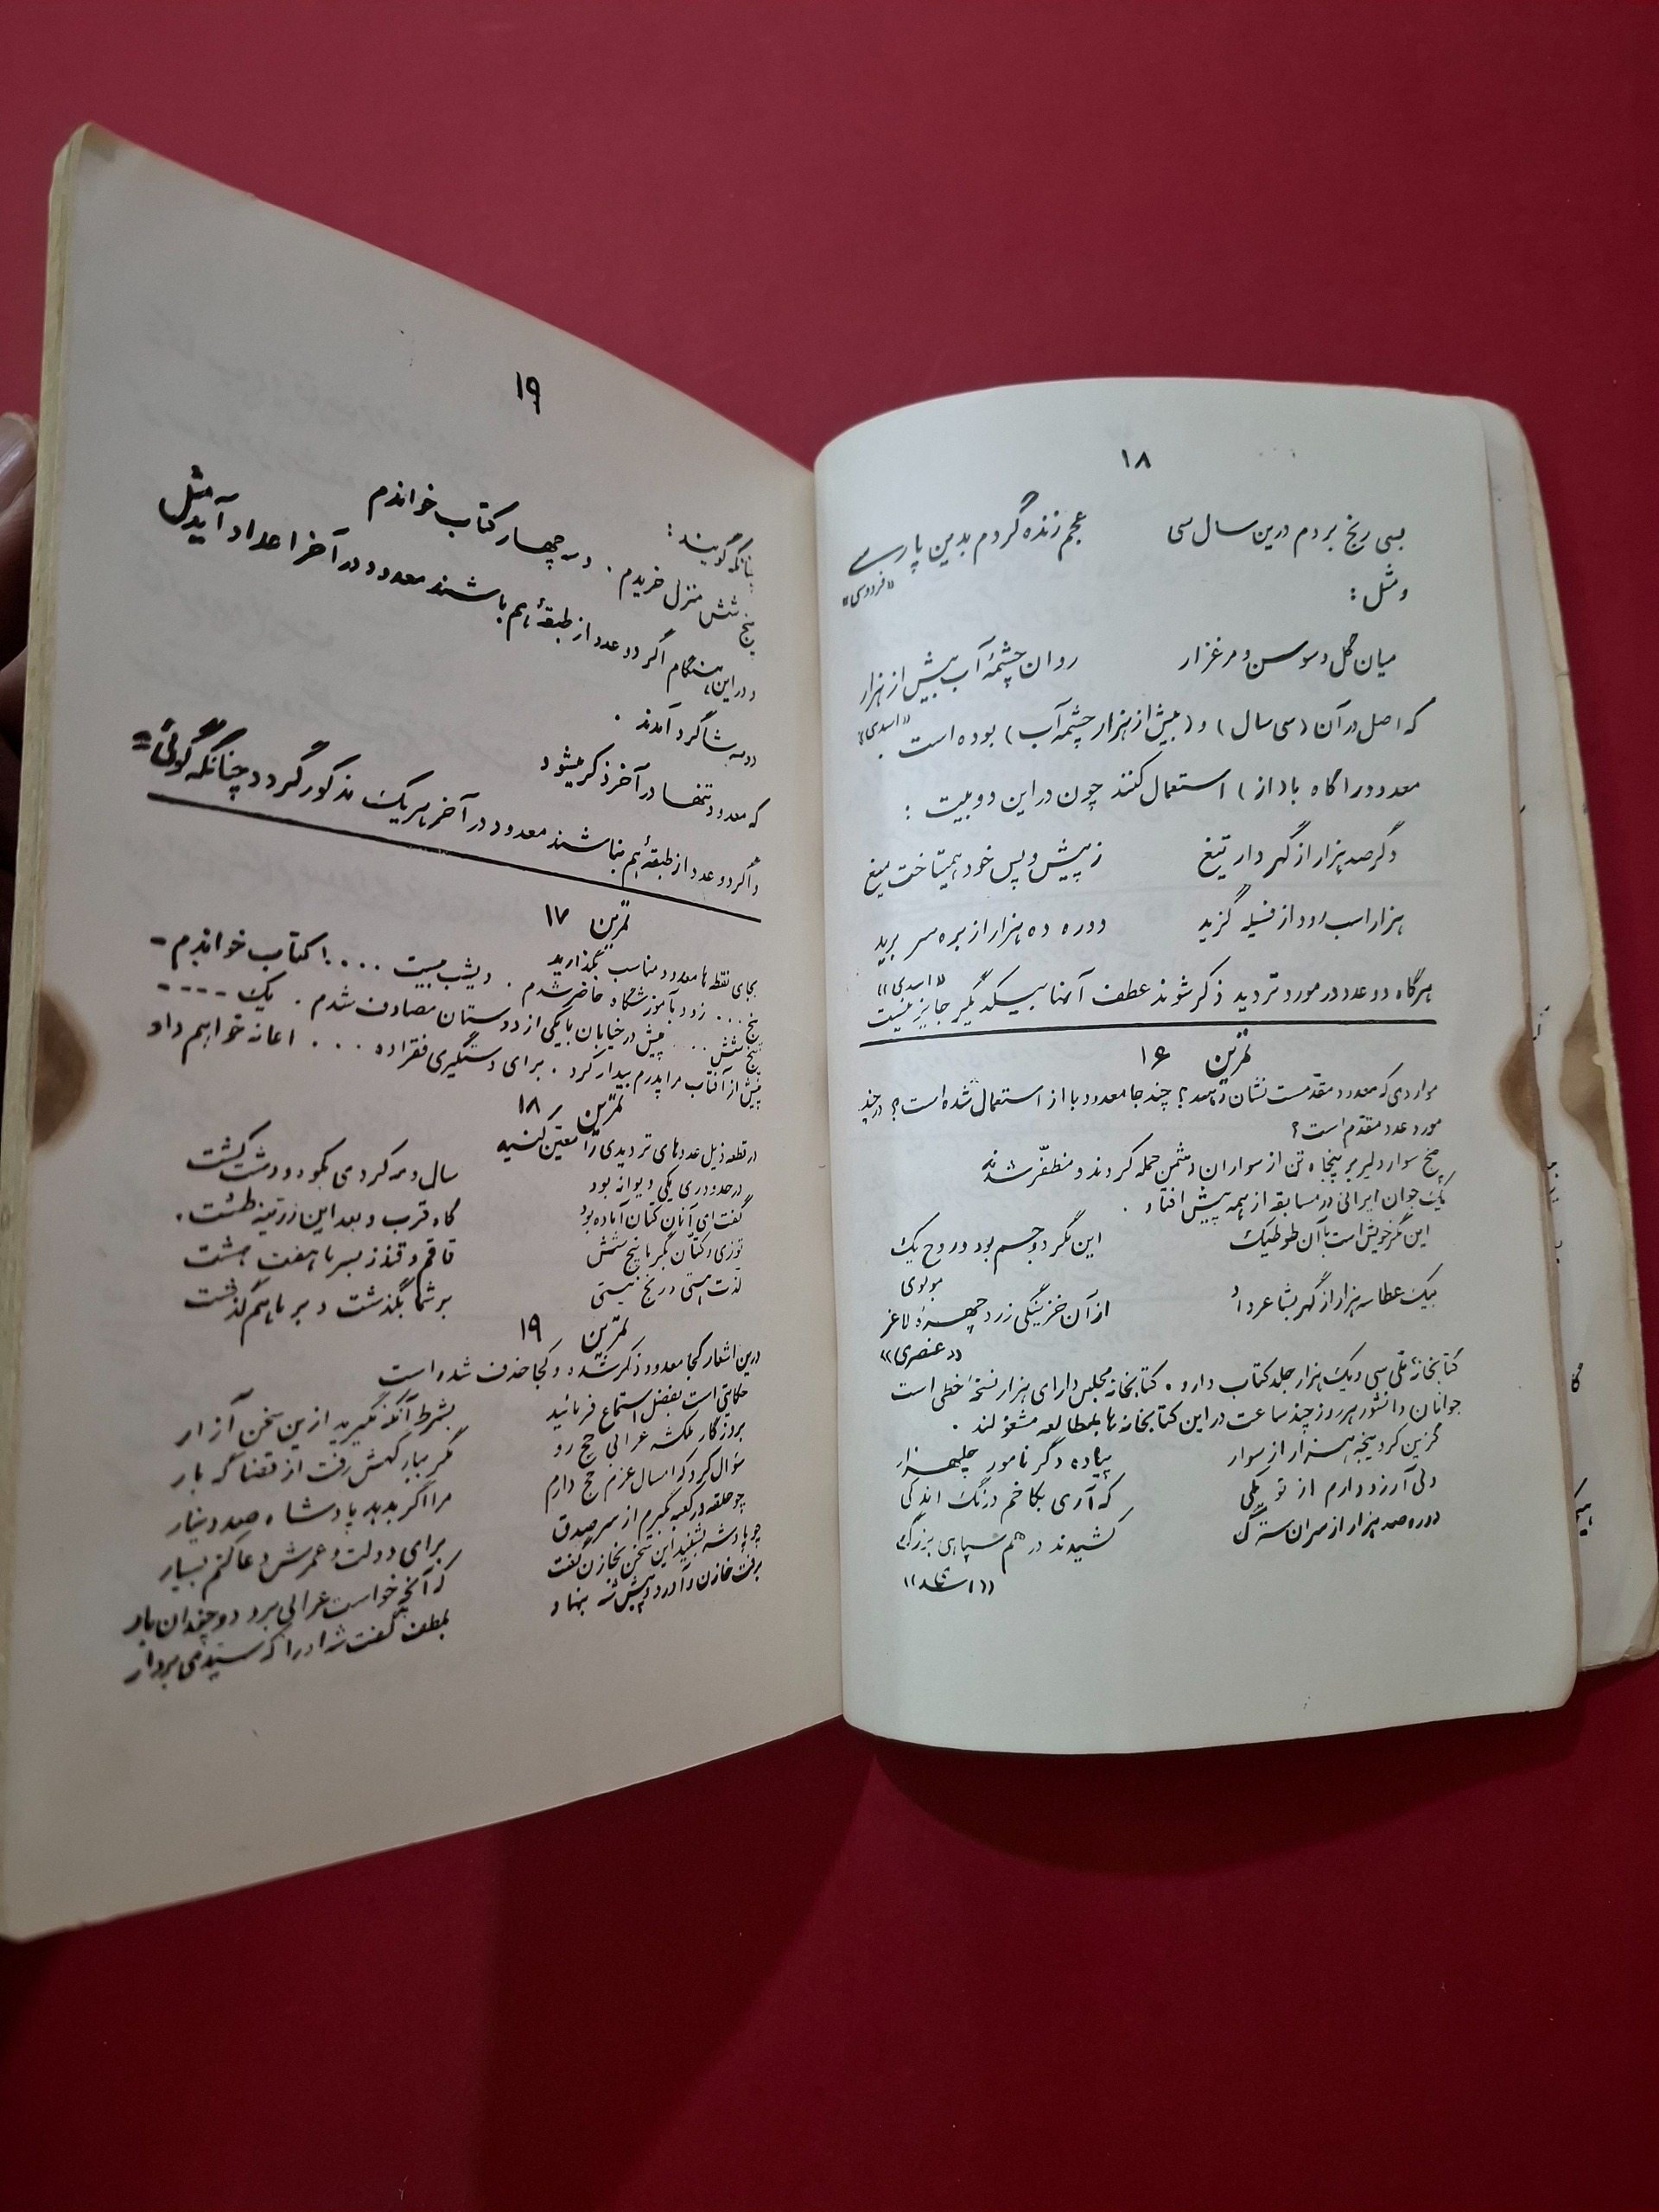 ۱۸
بسی رنج بردم درین سال سی عجم زنده کردم بدین پارسی
«فردوسی»
و مثل :
میان گل و سوسن و مرغزار روان چشمهٔ آب بیش از هزار
«اسدی»
که اصل در آن (سی سال) و (بیش از هزار چشمه آب) بوده است .
معدود را گاه با (از) استعمال کنند چون در این دو بیت :
دگر صد هزار از گهر دار تیغ ز پیش و پس خود همیتاخت میغ
هزار اسب رود از فسیله گزید دوره ده هزار از بره سر برید
«اسدی»
هرگاه دو عدد در مورد تردید ذکر شوند عطف آنها بیکدیگر جایز نیست
تمرین ۱۶
مواردی که معدود مقدمست نشان دهید ؟ چند جا معدود با از استعمال شده است ؟ در چند
مورد عدد مقدم است ؟
پنج سوار دلیر بر پنجاه تن از سواران دشمن حمله کردند و مظفّر شدند
یک جوان ایرانی در مسابقه از همه پیش افتاد .
این مگر خویش است با آن طوطیک این مگر دو جسم بود در روح یک
مولوی
بیک عطا سه هزار از گهر بشاعر داد از آن خزینگی زرد چهرهٔ لاغر
«عنصری»
کتابخانهٔ ملّی سی و یک هزار جلد کتاب دارد . کتابخانه مجلس دارای هزار نسخهٔ خطی است
جوانان دانشور هر روز چند ساعت در این کتابخانه‌ها بمطالعه مشغولند .
گزین کرد پنجه هزار از سوار پیاده دگر نامور چلهزار
دلی آرزو دارم از تو یکی که آری بکاخم درنگ اندکی
دوره صد هزار از سران سترگ کشیدند در هم سپاهی بزرگ
۱۹
چنانکه گویند :
پنج شش منزل خریدم . و سه چهار کتاب خواندم
و در این هنگام اگر دو عدد از طبقهٔ هم باشند معدود در آخر اعداد آید مثل
دو سه شاگرد آمدند .
که معدود تنها در آخر ذکر میشود
و اگر دو عدد از طبقهٔ هم نباشند معدود در آخر هر یک مذکور گردد چنانکه گوئی =
تمرین ۱۷
بجای نقطه‌ها معدود مناسب بگذارید
پنج ... زود بآموزشگاه حاضر شدم . دیشب بیست .... از کتاب خواندم -
پنج شش .... پیش در خیابان با یکی از دوستان مصادف شدم . یک ----
پیش از آفتاب مرا پدرم بیدار کرد . برای دستگیری فقرا ده ... اعانه خواهم داد
تمرین ۱۸
در قطعه ذیل عددهای تردیدی را معیّن کنید
در حدود ری یکی دیوانه بود سال و مه کردی بکوه و دشت گشت
گفت ای آنان کتان آماده بود گاه قرب و بعد این زرّینه طشت .
توزی و کتّان بگرما پنج شش قاقم و قندز بسرما هفت هشت
لذت هستی و رنج نیستی بر شما بگذشت و بر ما هم گذشت
تمرین ۱۹
درین اشعار کجا معدود ذکر شده و کجا حذف شده است
حکایتی است بفضل استماع فرمائید بشرط آنکه نگیرید از این سخن آزار
بروزگار ملکشه عرابی حج رو مگر ببارگهش رفت از قضا گه بار
سؤال کرد که امسال عزم حج دارم مرا اگر بدهد پادشاه صد دینار
چو حلقه در کعبه بگیرم از سر صدق برای دولت و عمرش دعا کنم بسیار
چو پادشه بشنید این سخن بخازن گفت که آنچه خواست عرابی برو دو چندان بار
برفت خازن و آورد و پیش شه بنهاد بلطف گفت شه او را که سیّدی بردار